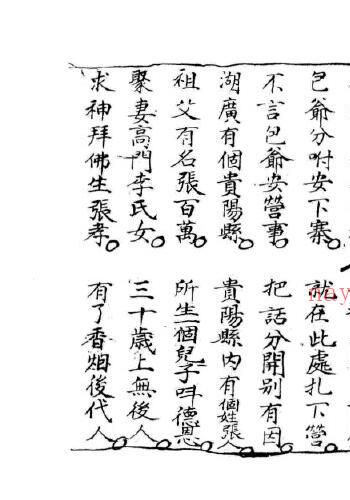 包爺分咐安下寨
就在此處扎下營
不言包爺安營事
把話分開别有因
湖廣有個貴陽縣
貴陽縣内有個姓張人
祖父有名張百萬
所生一個兒子呌德恩
聚妻高門李氏女
三十歲上無後人
求神拜佛生張孝
有了香烟後代人
nay